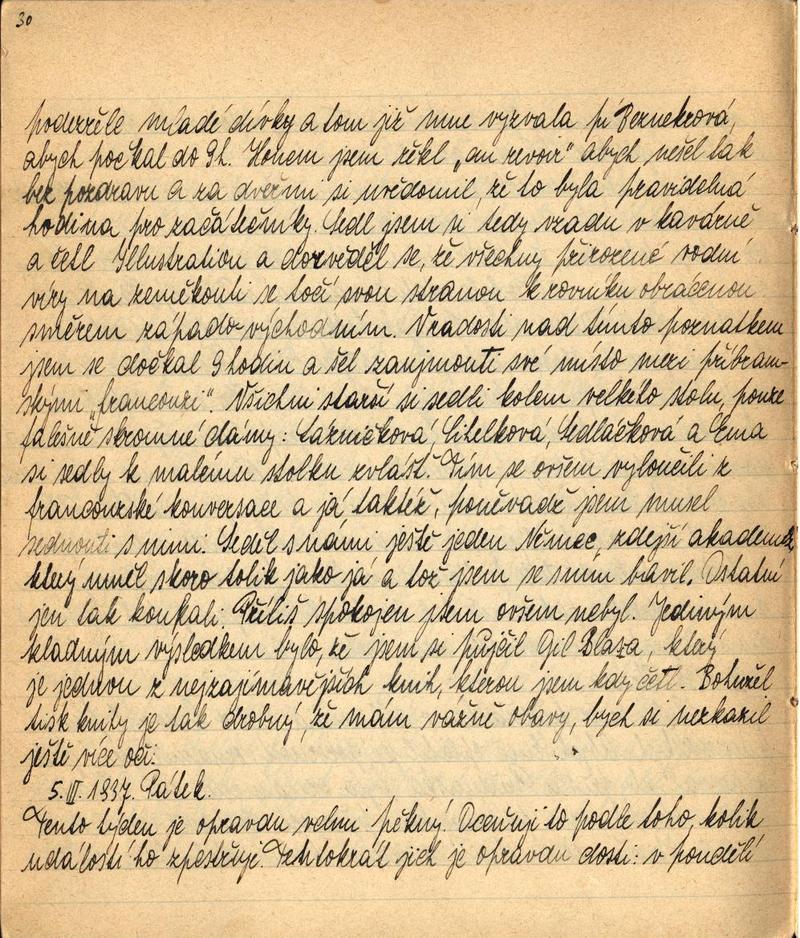 30
podezřele mladé dívky a tom již mne vyzvala pí Bernekrová,
abych počkal do 9h. Honem jsem řekl „au revoir" abych nešel tak
bez pozdravu a za dveřmi si uvědomil, že to byla pravidelná
hodina pro začátečníky. Sedl jsem si tedy vzadu v kavárně
a četl Illustration a dozvěděl se, že všechny přirozené vodní
víry na zeměkouli se točí svou stranou k rovníku obrácenou
směrem západo-východním. V radosti nad tímto poznatkem
jsem se dočkal 9 hodin a šel zaujmouti své místo mezi příbram-
skými „francouzi". Všichni starší si sedli kolem velkého stolu, pouze
falešně skromné dámy: Lázničková, Citelková, Sedláčková a Ema
si sedly k malému stolku zvlášť. Tím se ovšem vyloučili z
francouzské konversace a já taktéž, poněvadž jsem musel
sednouti s nimi. Seděl s námi ještě jeden Němec, zdejší akademik
který uměl skoro tolik jako já a tož jsem se s ním bavil. Ostatní
jen tak koukali. Příliš spokojen jsem ovšem nebyl. Jediným
kladným výsledkem bylo, že jsem si půjčil Gil Blasa, který
je jednou z nejzajímavějších knih, kterou jsem kdy četl. Bohužel
tisk knihy je tak drobný, že mám vážné obavy, bych si nezkazil
ještě více oči.
5. III. 1937. Pátek.
Tento týden je opravdu velmi pěkný. Oceňuji to podle toho, kolik
událostí ho zpestřuje. Tentokrát jich je opravdu dosti: v pondělí